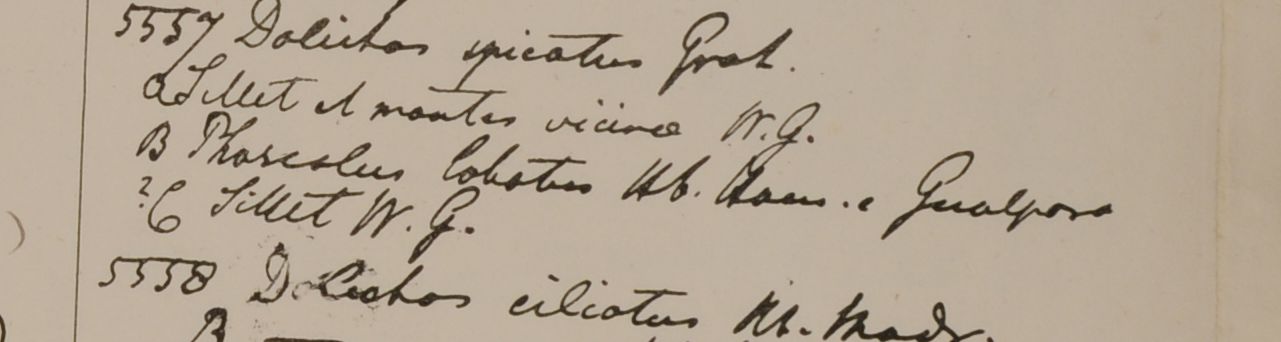 5557 Dolichos spicatus Grah.
a Sillet et montes vicinae W.G.
B Phaseolus lobatus Hb. Ham. e Gualpara
?C Sillet W.G.
5558 Dolichos ciliatus Hb. Madr.
B